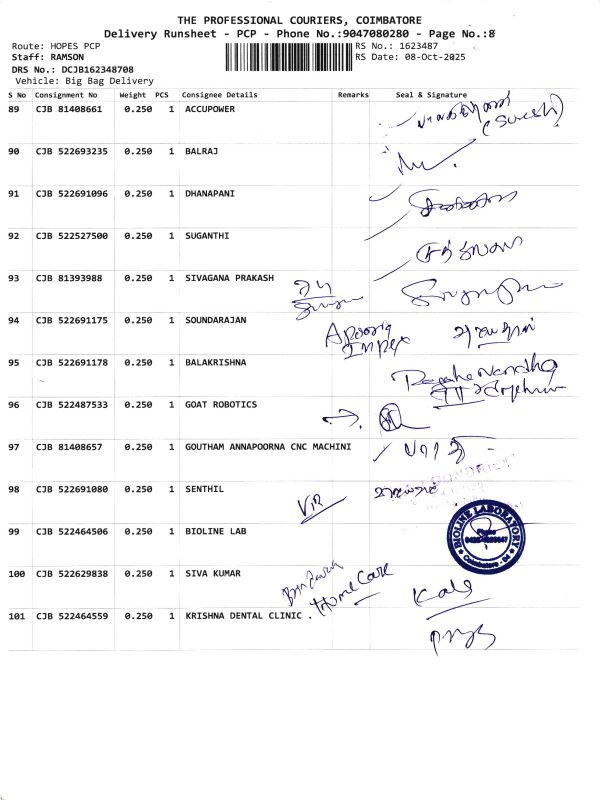 THE PROFESSIONAL COURIERS, COIMBATORE
Delivery Runsheet - PCP - Phone No.:9047080280 - Page No.:8
Route: HOPES PCP RS No.: 1623487
Staff: RAMSON RS Date: 08-Oct-2025
DRS No.: DCJB162348708
Vehicle: Big Bag Delivery
S No Consignment No Weight PCS Consignee Details Remarks Seal & Signature
89 CJB 81408661 0.250 1 ACCUPOWER
(Suresh)
90 CJB 522693235 0.250 1 BALRAJ
91 CJB 522691096 0.250 1 DHANAPANI
92 CJB 522527500 0.250 1 SUGANTHI
93 CJB 81393988 0.250 1 SIVAGANA PRAKASH
94 CJB 522691175 0.250 1 SOUNDARAJAN Apoorq
Impex
95 CJB 522691178 0.250 1 BALAKRISHNA
96 CJB 522487533 0.250 1 GOAT ROBOTICS
97 CJB 81408657 0.250 1 GOUTHAM ANNAPOORNA CNC MACHINI
98 CJB 522691080 0.250 1 SENTHIL
99 CJB 522464506 0.250 1 BIOLINE LAB BIOLINE LABORATORY
100 CJB 522629838 0.250 1 SIVA KUMAR
Home Care
Kala
101 CJB 522464559 0.250 1 KRISHNA DENTAL CLINIC .